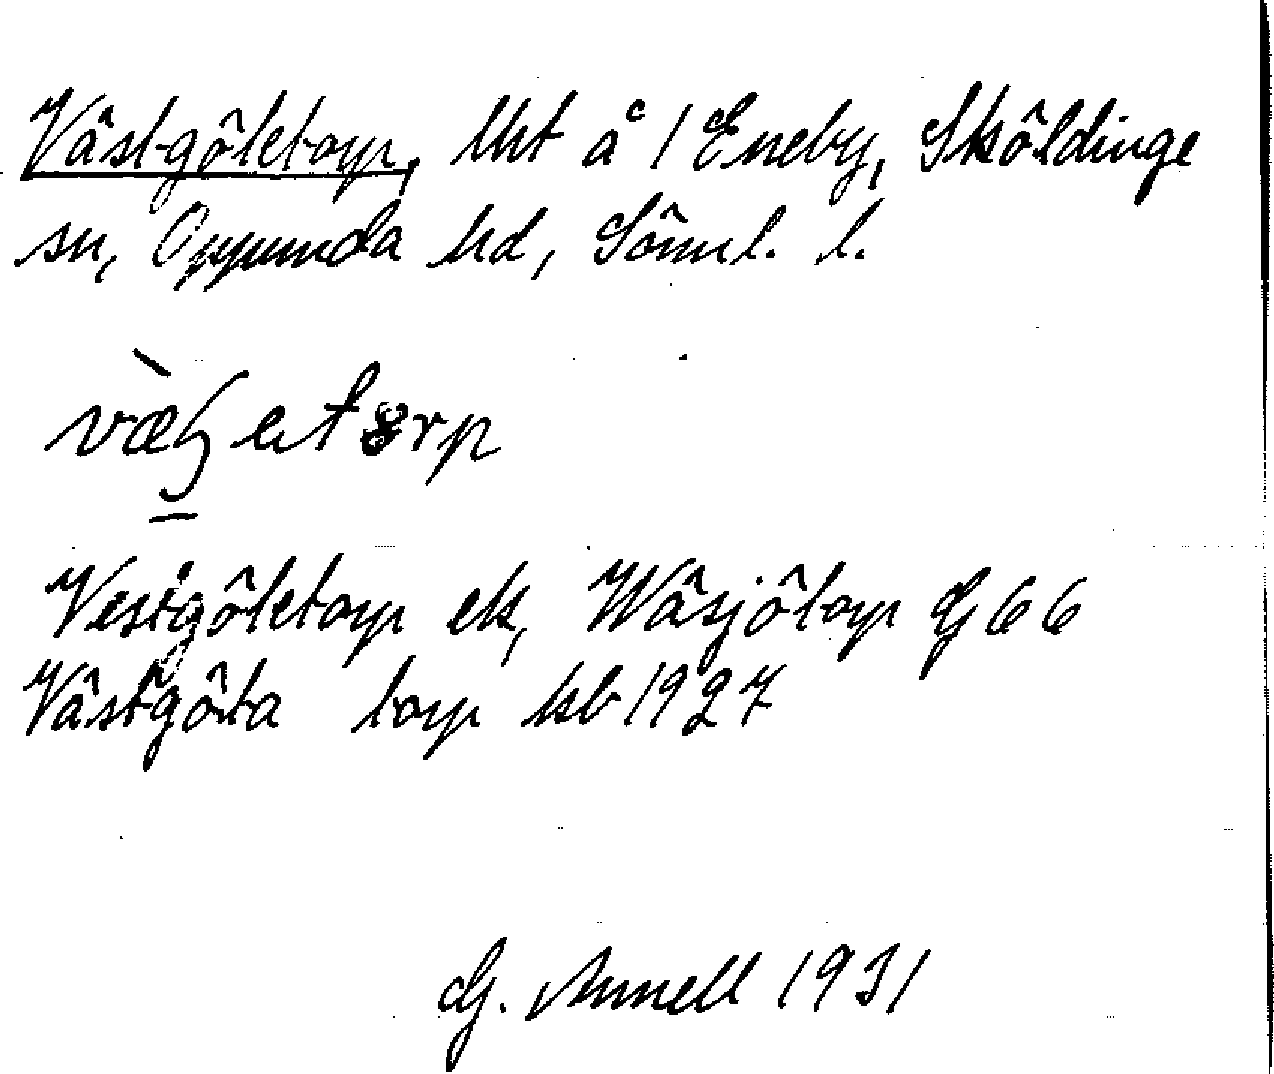 Västgötetorp, lht å 1 Eneby, Sköldinge
sn, Oppunda hd, Söml. l.
Vestgötetorp ek, Wäsjötorp G 66
Västgöta torp kb 1927
G. Annell 1931